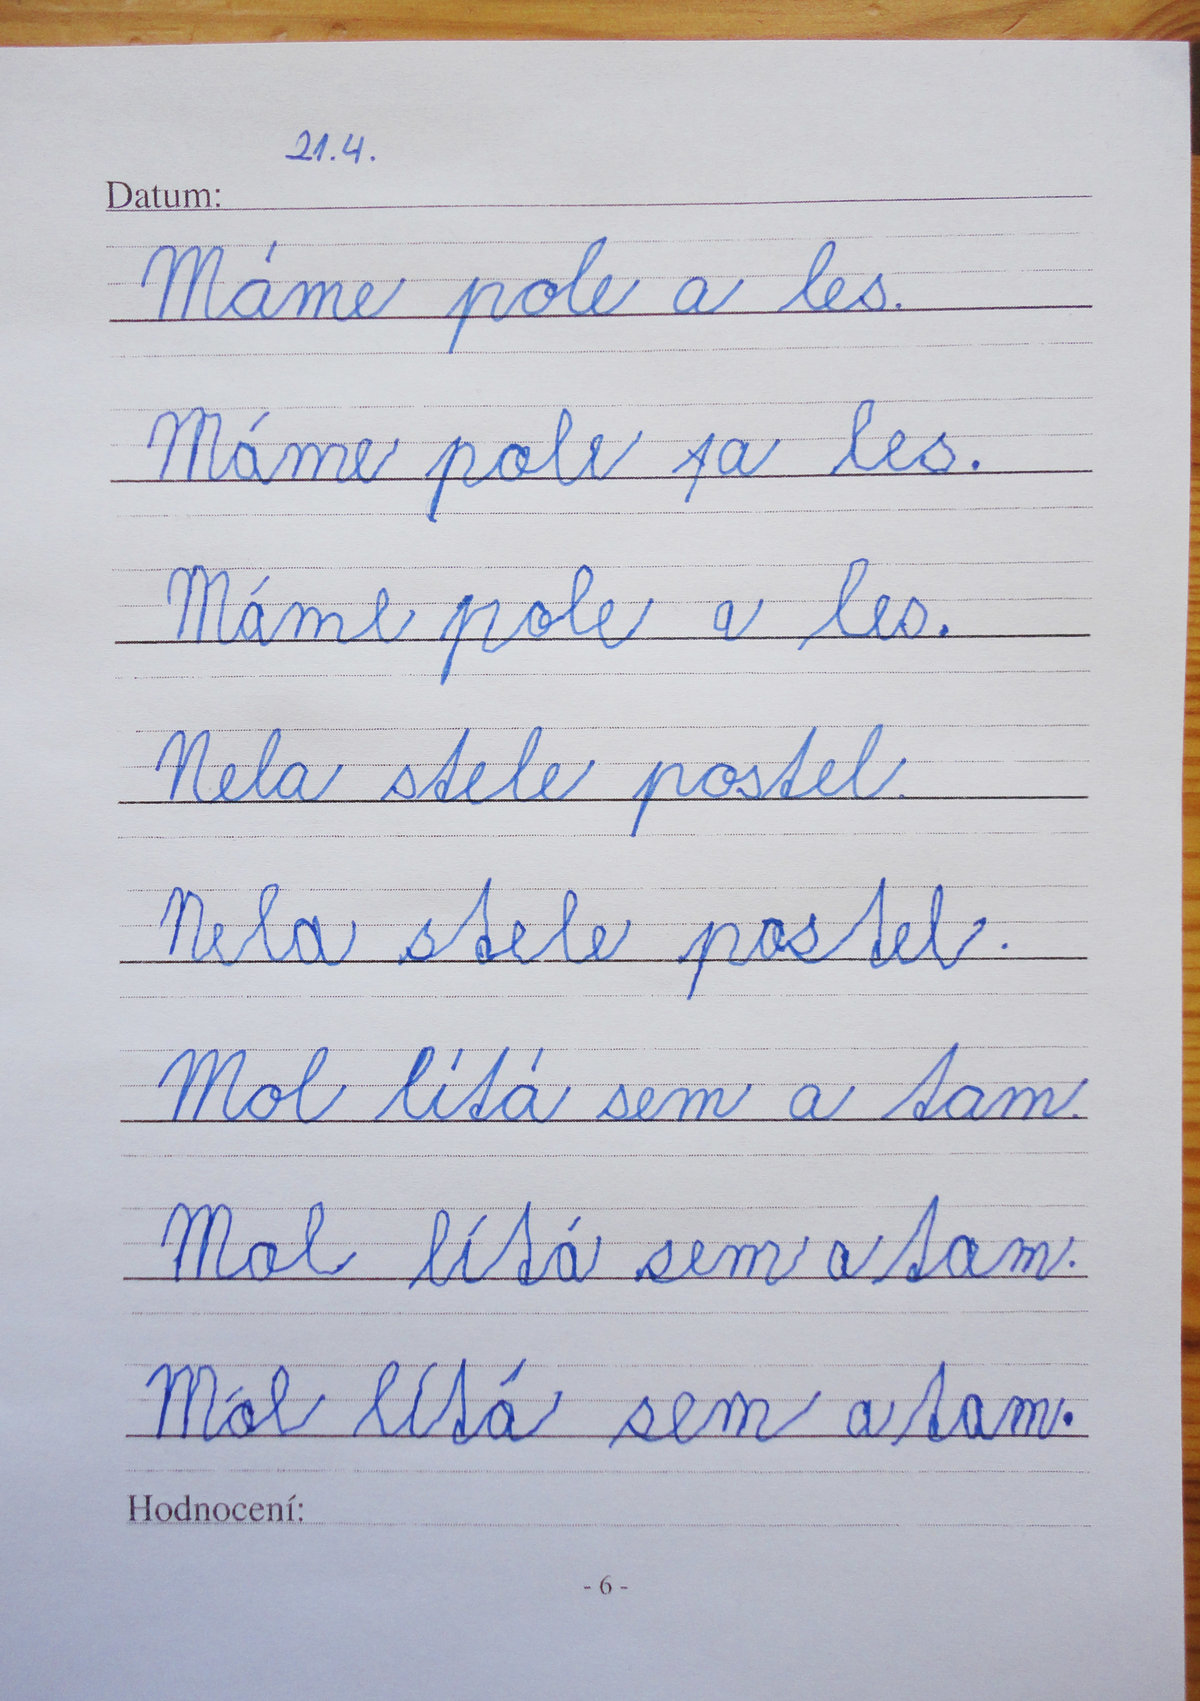 21.4.
Datum:
Máme pole a les.
Máme pole a les.
Máme pole a les.
Nela stele postel.
Nela stele postel.
Mol lítá sem a tam.
Mol lítá sem a tam.
Mol lítá sem a tam.
Hodnocení:
- 6 -